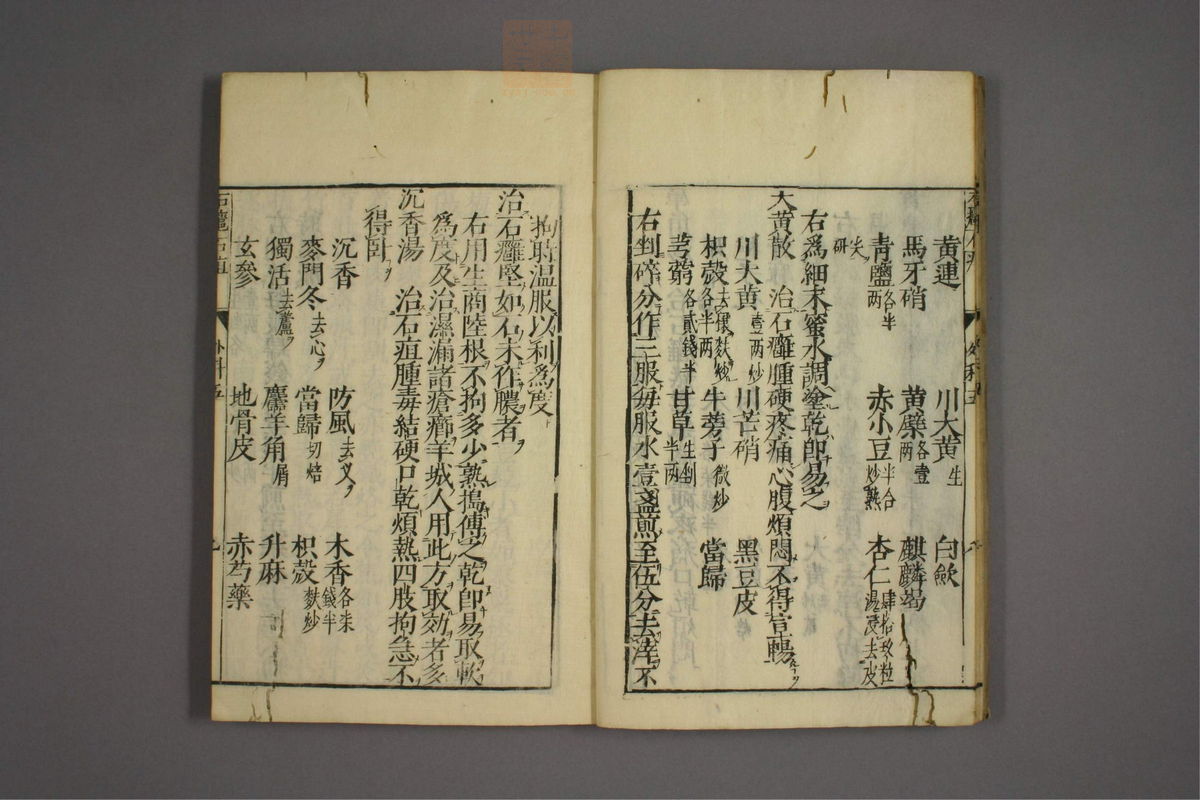 黃連 川大黃生 白歛
馬牙硝 黃蘗各壹兩 麒麟竭
青鹽各半兩 赤小豆半合炒熟 杏仁肆拾玖粒湯浸去皮
尖研
右爲細末蜜水調塗乾即易之
大黃散 治石癰腫硬疼痛心腹煩悶不得宣暢
川大黃壹兩炒 川芒硝 黑豆皮
枳殼去穰麩炒各半兩 牛蒡子微炒 當歸
芎藭各貳錢半 甘草生剉半兩
右剉碎分作三服每服水壹盞煎至伍分去滓不
拘時温服以利爲度
治石癰堅如石未作膿者
右用生商陸根不拘多少熟搗傅之乾即易取軟
爲度及治濕漏諸瘡癤羊城人用此方取効者多
沉香湯 治石疽腫毒結硬口乾煩熱四肢拘急不
得卧
沉香 防風去叉 木香各柒錢半
麥門冬去心 當歸切焙 枳殼麩炒
獨活去蘆 麢羊角屑 升麻
玄參 地骨皮 赤芍藥